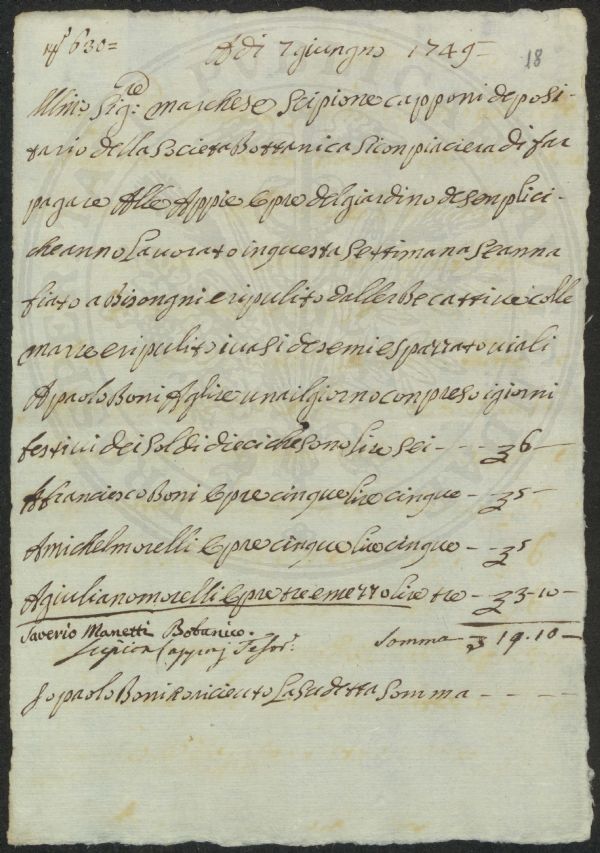 nº 630=
A di 7 giungno 1749
18
Illmo Sigre: marchese Scipione capponi deposi-
tario della Societa Bottanica Si conpiaciera di far
pagare Alle Appie Opre del giardino de Senplici-
che anno Lavorato in questa Settimana Se anna
fiato a Bisongni e ripulito dall erBe cattive i colle
marre e ripulito i vasi de semi e spazzato i viali
A paolo Boni A lire una il giorno conpreso i giorni
festivi dei Soldi dieci che sono lire sei - - - 6 -
A francesco Boni Opre cinque lire cinque - - 5 -
A michel morelli Opre cinque lire cinque - - 5
A giuliano morelli Opre tre e mezzo lire tre - - 3-10-
Saverio Manetti Botanico. Somma 19.10-
Scipion Capponj Tesorᵉ.
Io paolo Boni o riceuto La Sudetta Somma - - - -